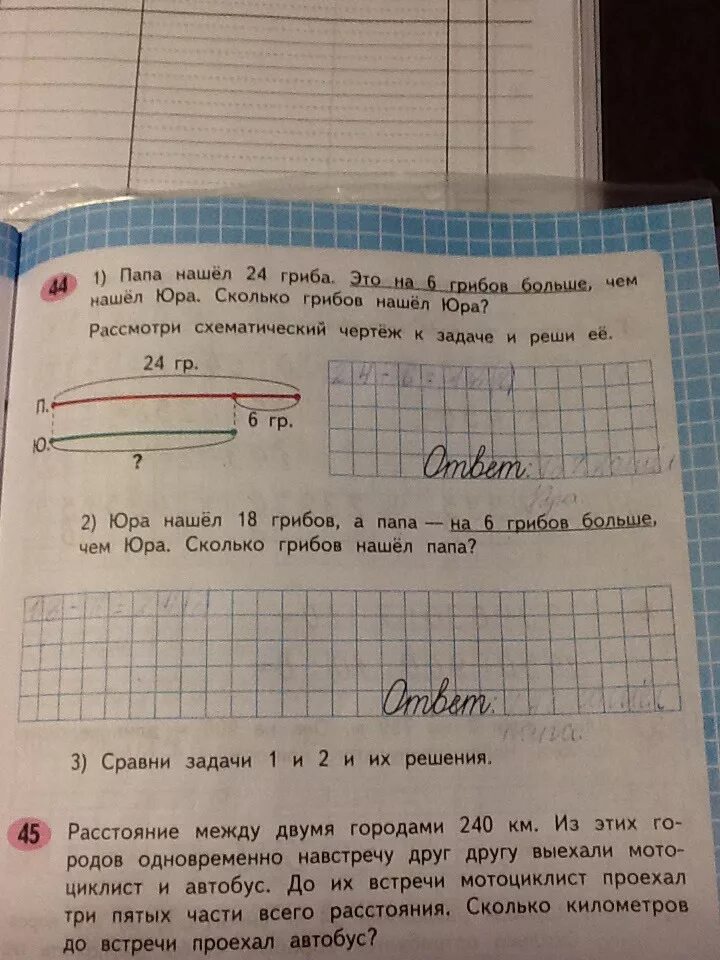 44 1) Папа нашёл 24 гриба. Это на 6 грибов больше, чем
нашёл Юра. Сколько грибов нашёл Юра?
Рассмотри схематический чертёж к задаче и реши её.
24 гр.
П.
6 гр.
Ю.
?
24-6=
Ответ:
2) Юра нашёл 18 грибов, а папа — на 6 грибов больше,
чем Юра. Сколько грибов нашёл папа?
Ответ:
папа.
3) Сравни задачи 1 и 2 и их решения.
45 Расстояние между двумя городами 240 км. Из этих го-
родов одновременно навстречу друг другу выехали мото-
циклист и автобус. До их встречи мотоциклист проехал
три пятых части всего расстояния. Сколько километров
до встречи проехал автобус?